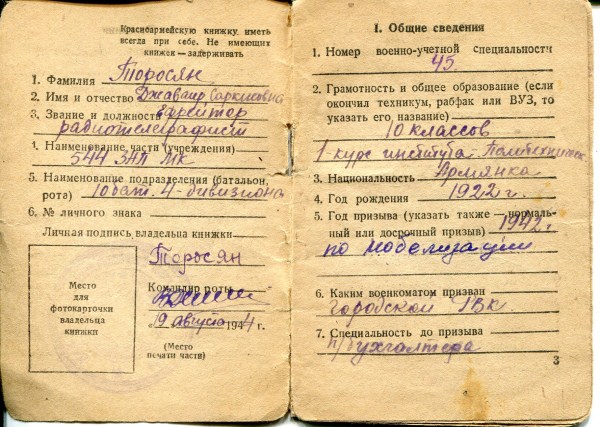 Красноармейскую книжку иметь
всегда при себе. Не имеющих
книжек — задерживать
1. Фамилия Торосян
2. Имя и отчество Джаваир Саркисовна
3. Звание и должность ефрейтор
радиотелеграфист
4. Наименование части (учреждения)
544 ЗАП МК
5. Наименование подразделения (батальон,
рота) 10 бат. 4-дивизиона
6. № личного знака
Личная подпись владельца книжки
Торосян
Место
для
фотокарточки
владельца
книжки
Командир роты
19 августа 1944 г.
(Место
печати части)
I. Общие сведения
1. Номер военно-учетной специальности
45.
2. Грамотность и общее образование (если
окончил техникум, рабфак или ВУЗ, то
указать его название)
10 классов
1-курс института Политехническ.
3. Национальность Армянка
4. Год рождения 1922 г.
5. Год призыва (указать также — нормаль-
ный или досрочный призыв) 1942 г.
по мобелизации
6. Каким военкоматом призван
Городской ГВК
7. Специальность до призыва
бухгалтера
3